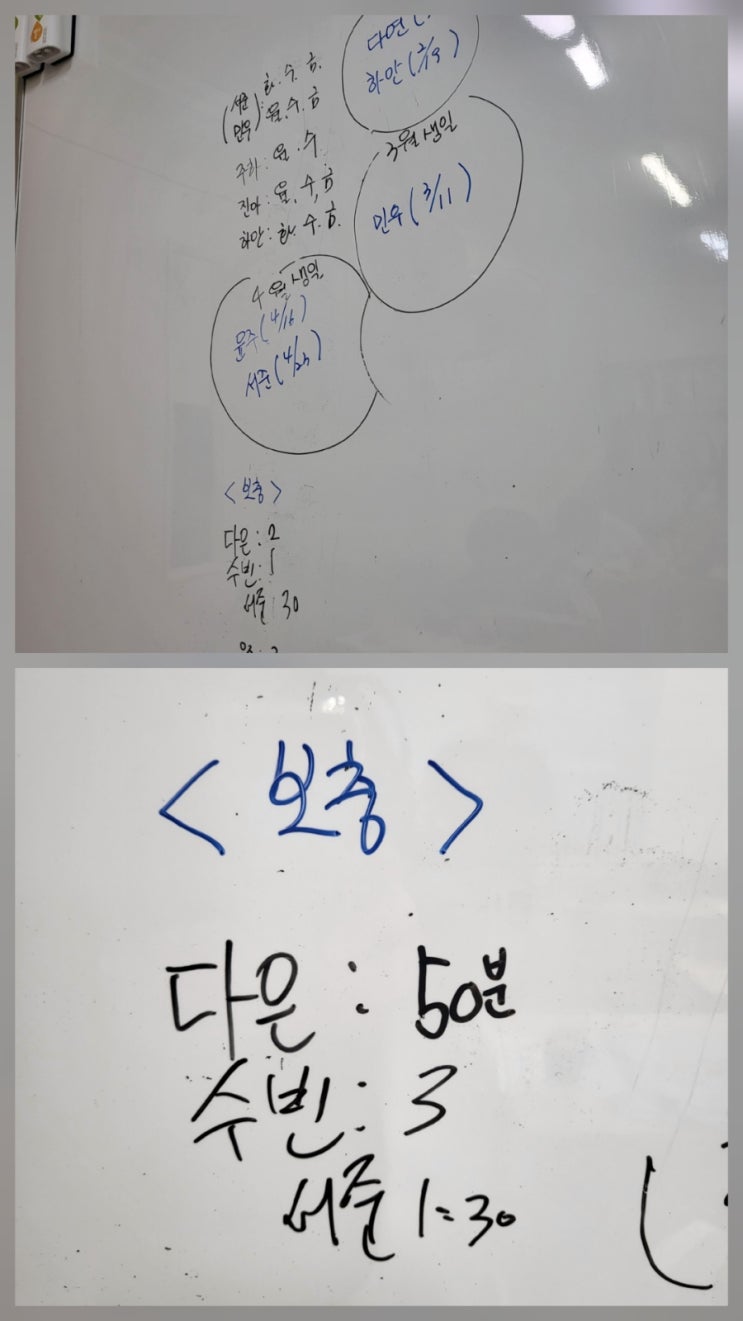 다연(
하안(2/9)
서준
민우
: 화. 수. 금.
: 월. 수. 금
주하: 월. 수
진아: 월. 수, 금
하안: 화. 수. 금.
3월 생일
민우(3/11)
4월 생일
윤주(4/16)
서준(4/25)
<보충>
다은: 2
수빈: 1
서준: 30
<보충>
다은: 50분
수빈: 3
서준 1:30